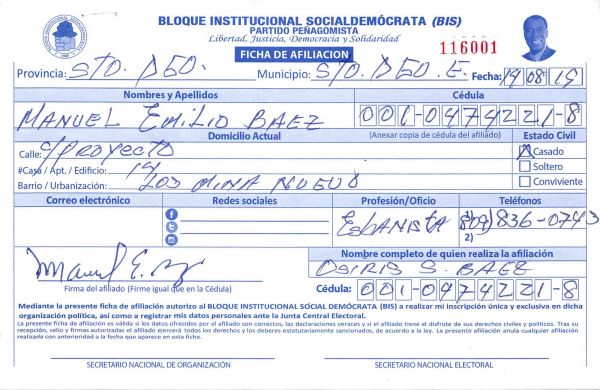 BLOQUE INSTITUCIONAL SOCIALDEMÓCRATA (BIS)
PARTIDO PEÑAGOMISTA
Libertad, Justicia, Democracia y Solidaridad
FICHA DE AFILIACION
116001
Provincia: STO. DGO. Municipio: STO. DGO. E. Fecha: 19/08/19
Nombres y Apellidos Cédula
MANUEL EMILIO BAEZ 001-0474221-8
Domicilio Actual (Anexar copia de cédula del afiliado) Estado Civil
Calle: C/ PROYECTO Casado
#Casa / Apt. / Edificio: 14 Soltero
Barrio / Urbanización: LOS MINA NUEVO Conviviente
Correo electrónico Redes sociales Profesión/Oficio Teléfonos
EBANISTA 1) 809) 836-0743
2)
Manuel E.
Firma del afiliado (Firme igual que en la Cédula)
Nombre completo de quien realiza la afiliación
OSIRIS S. BAEZ
Cédula: 001-0474221-8
Mediante la presente ficha de afiliación autorizo al BLOQUE INSTITUCIONAL SÓCIAL DEMÓCRATA (BIS) a realizar mi inscripción única y exclusiva en dicha
organización política, así como a registrar mis datos personales ante la Junta Central Electoral.
La presente ficha de afiliación es válida si los datos ofrecidos por el afiliado son correctos, las declaraciones veraces y si el afiliado tiene el disfrute de sus derechos civiles y políticos. Tras su
recepción, sello y firmas autorizadas el afiliado ejercerá todos los derechos y los deberes estatutariamente sancionados, de acuerdo a la ley. La presente afiliación anula cualquier afiliación
realizada con anterioridad a la fecha que aparece en esta ficha.
SECRETARIO NACIONAL DE ORGANIZACIÓN SECRETARIO NACIONAL ELECTORAL